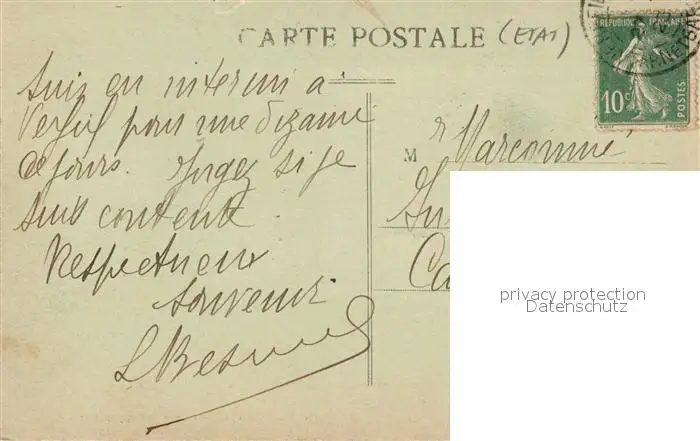 CARTE POSTALE (ETAT)
RÉPUBLIQUE FRANÇAISE
10c POSTES
Suis en interim a
pour une dizaine
de jours. Jugez si je
suis contente.
Respectueux
souvenir
M r Marconné
privacy protection
Datenschutz